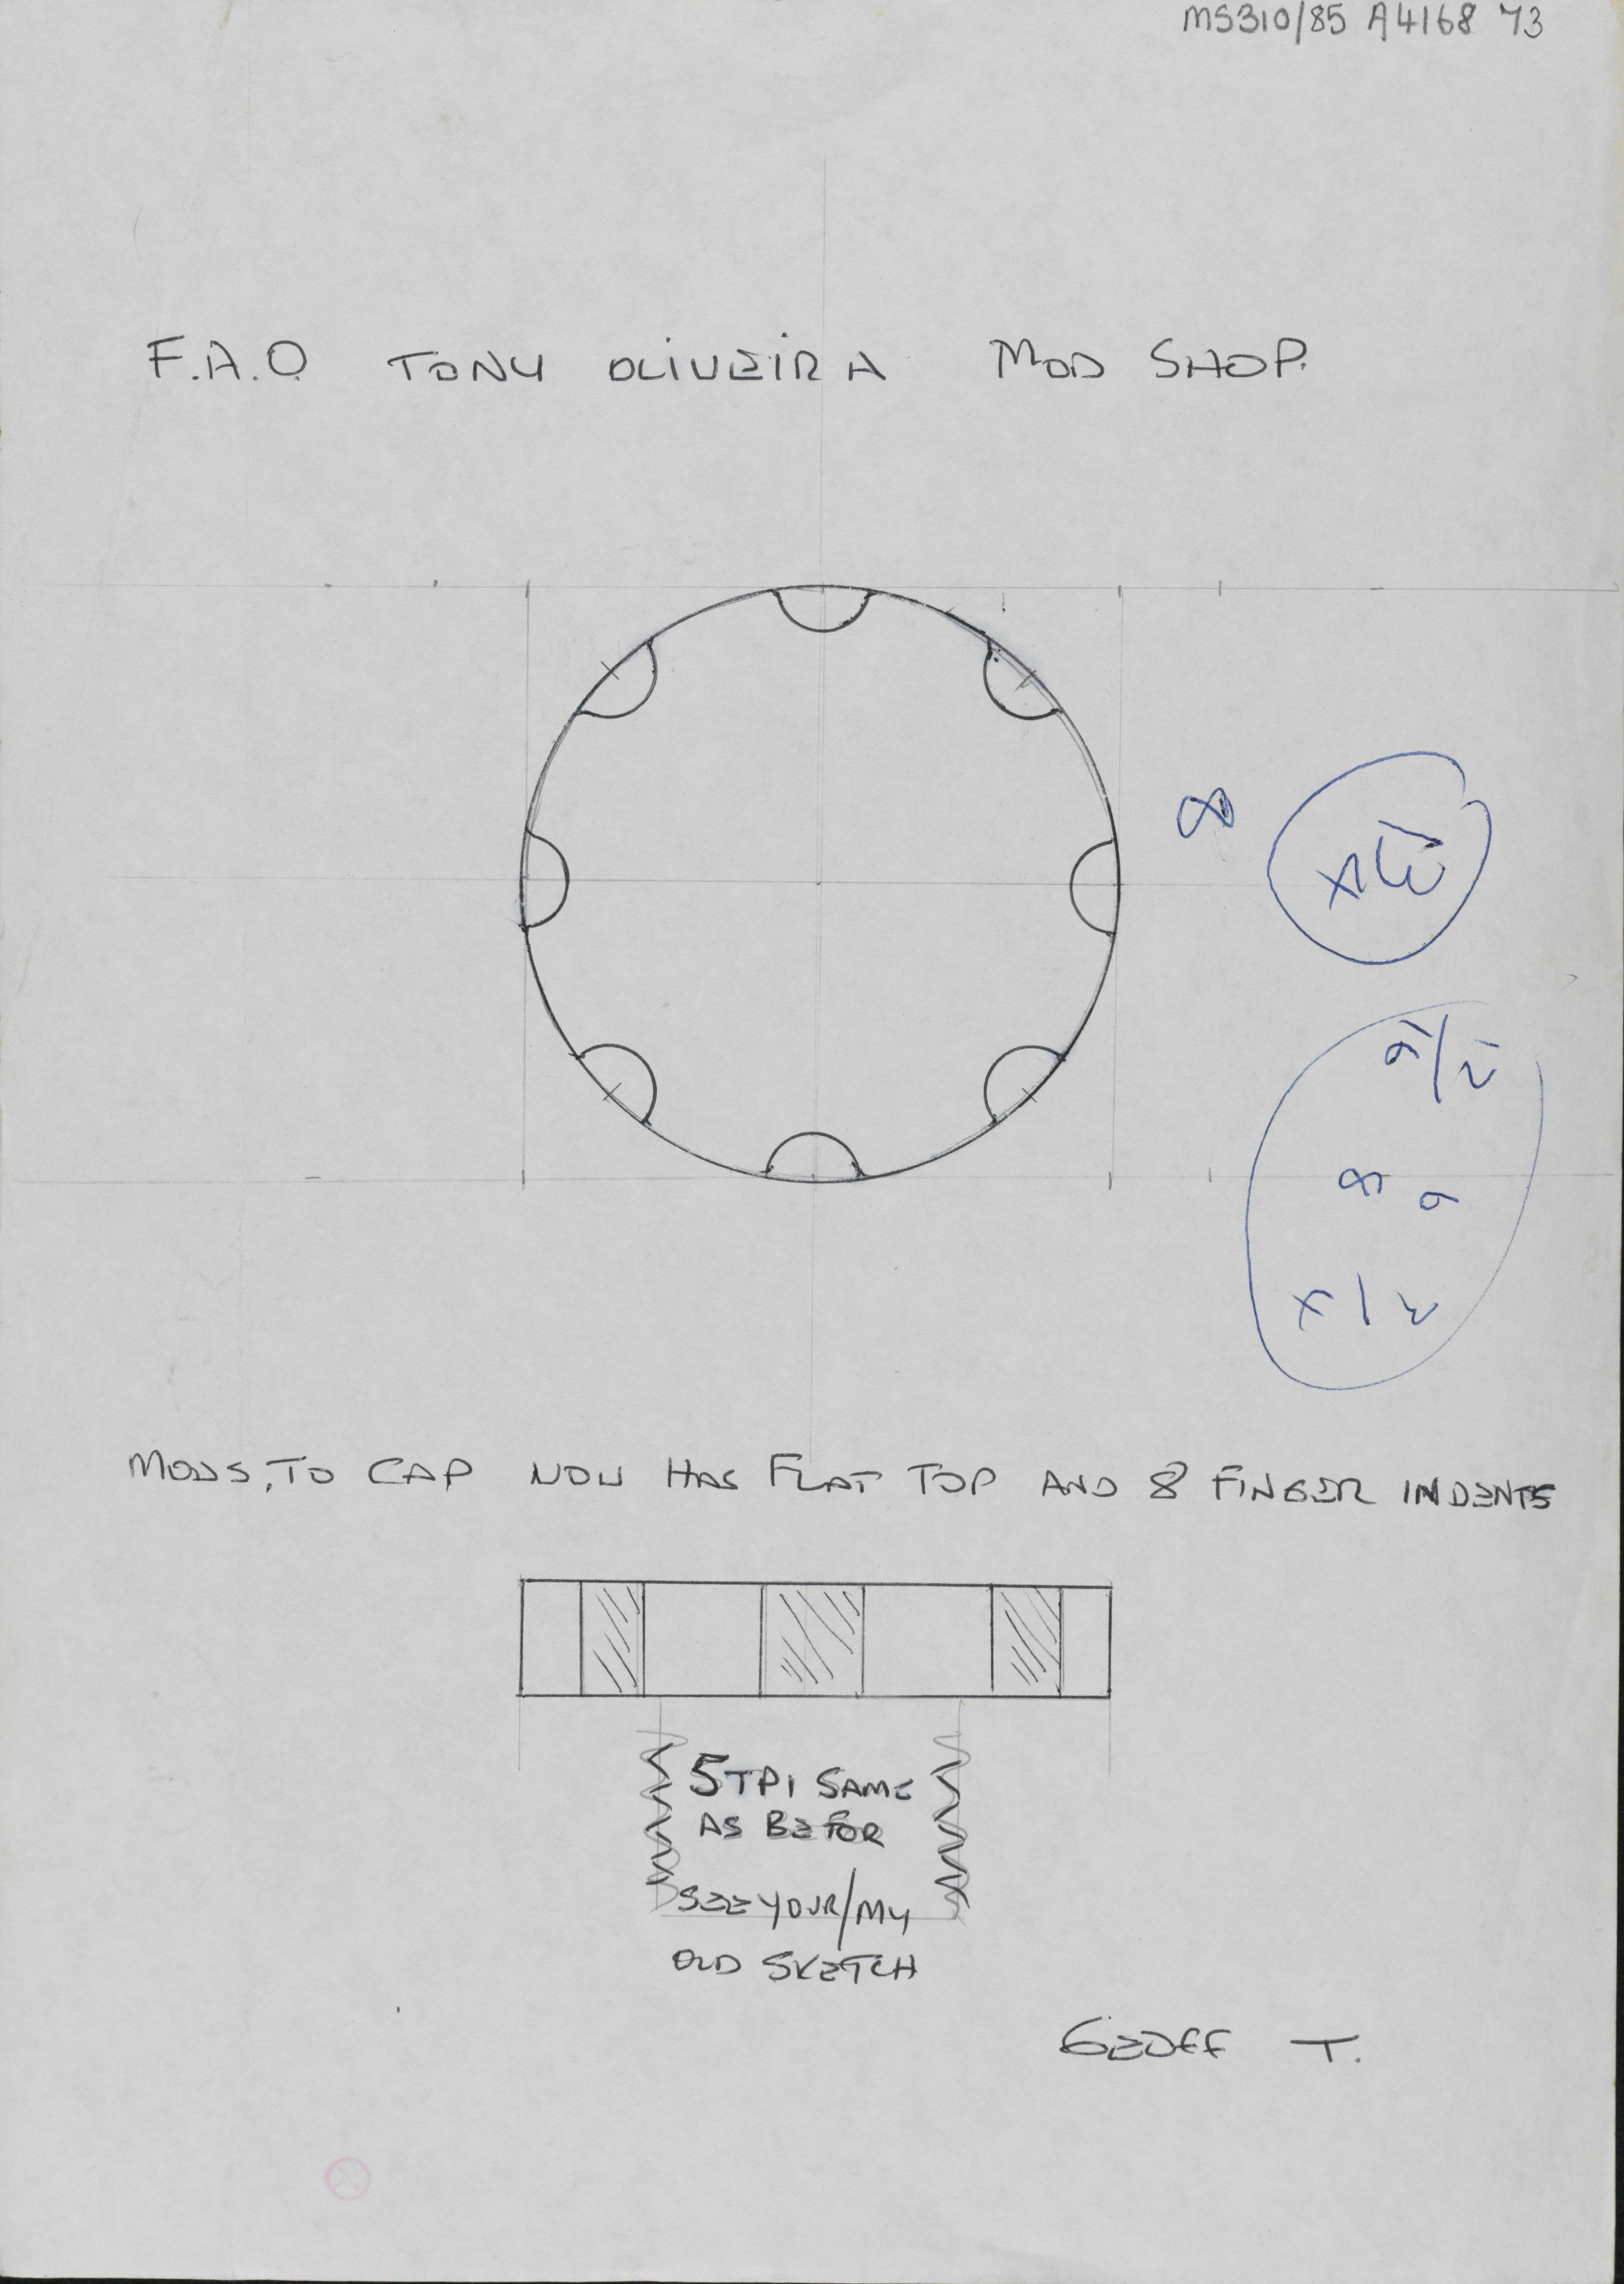 MS310/85 A4168 73
F.A.O TONY OLIVEIRA MOD SHOP.
MODS, TO CAP NOW HAS FLAT TOP AND 8 FINGER INDENTS
5 TPI SAME
AS BEFOR
SEE YOUR/MY
OLD SKETCH
GEOFF T.